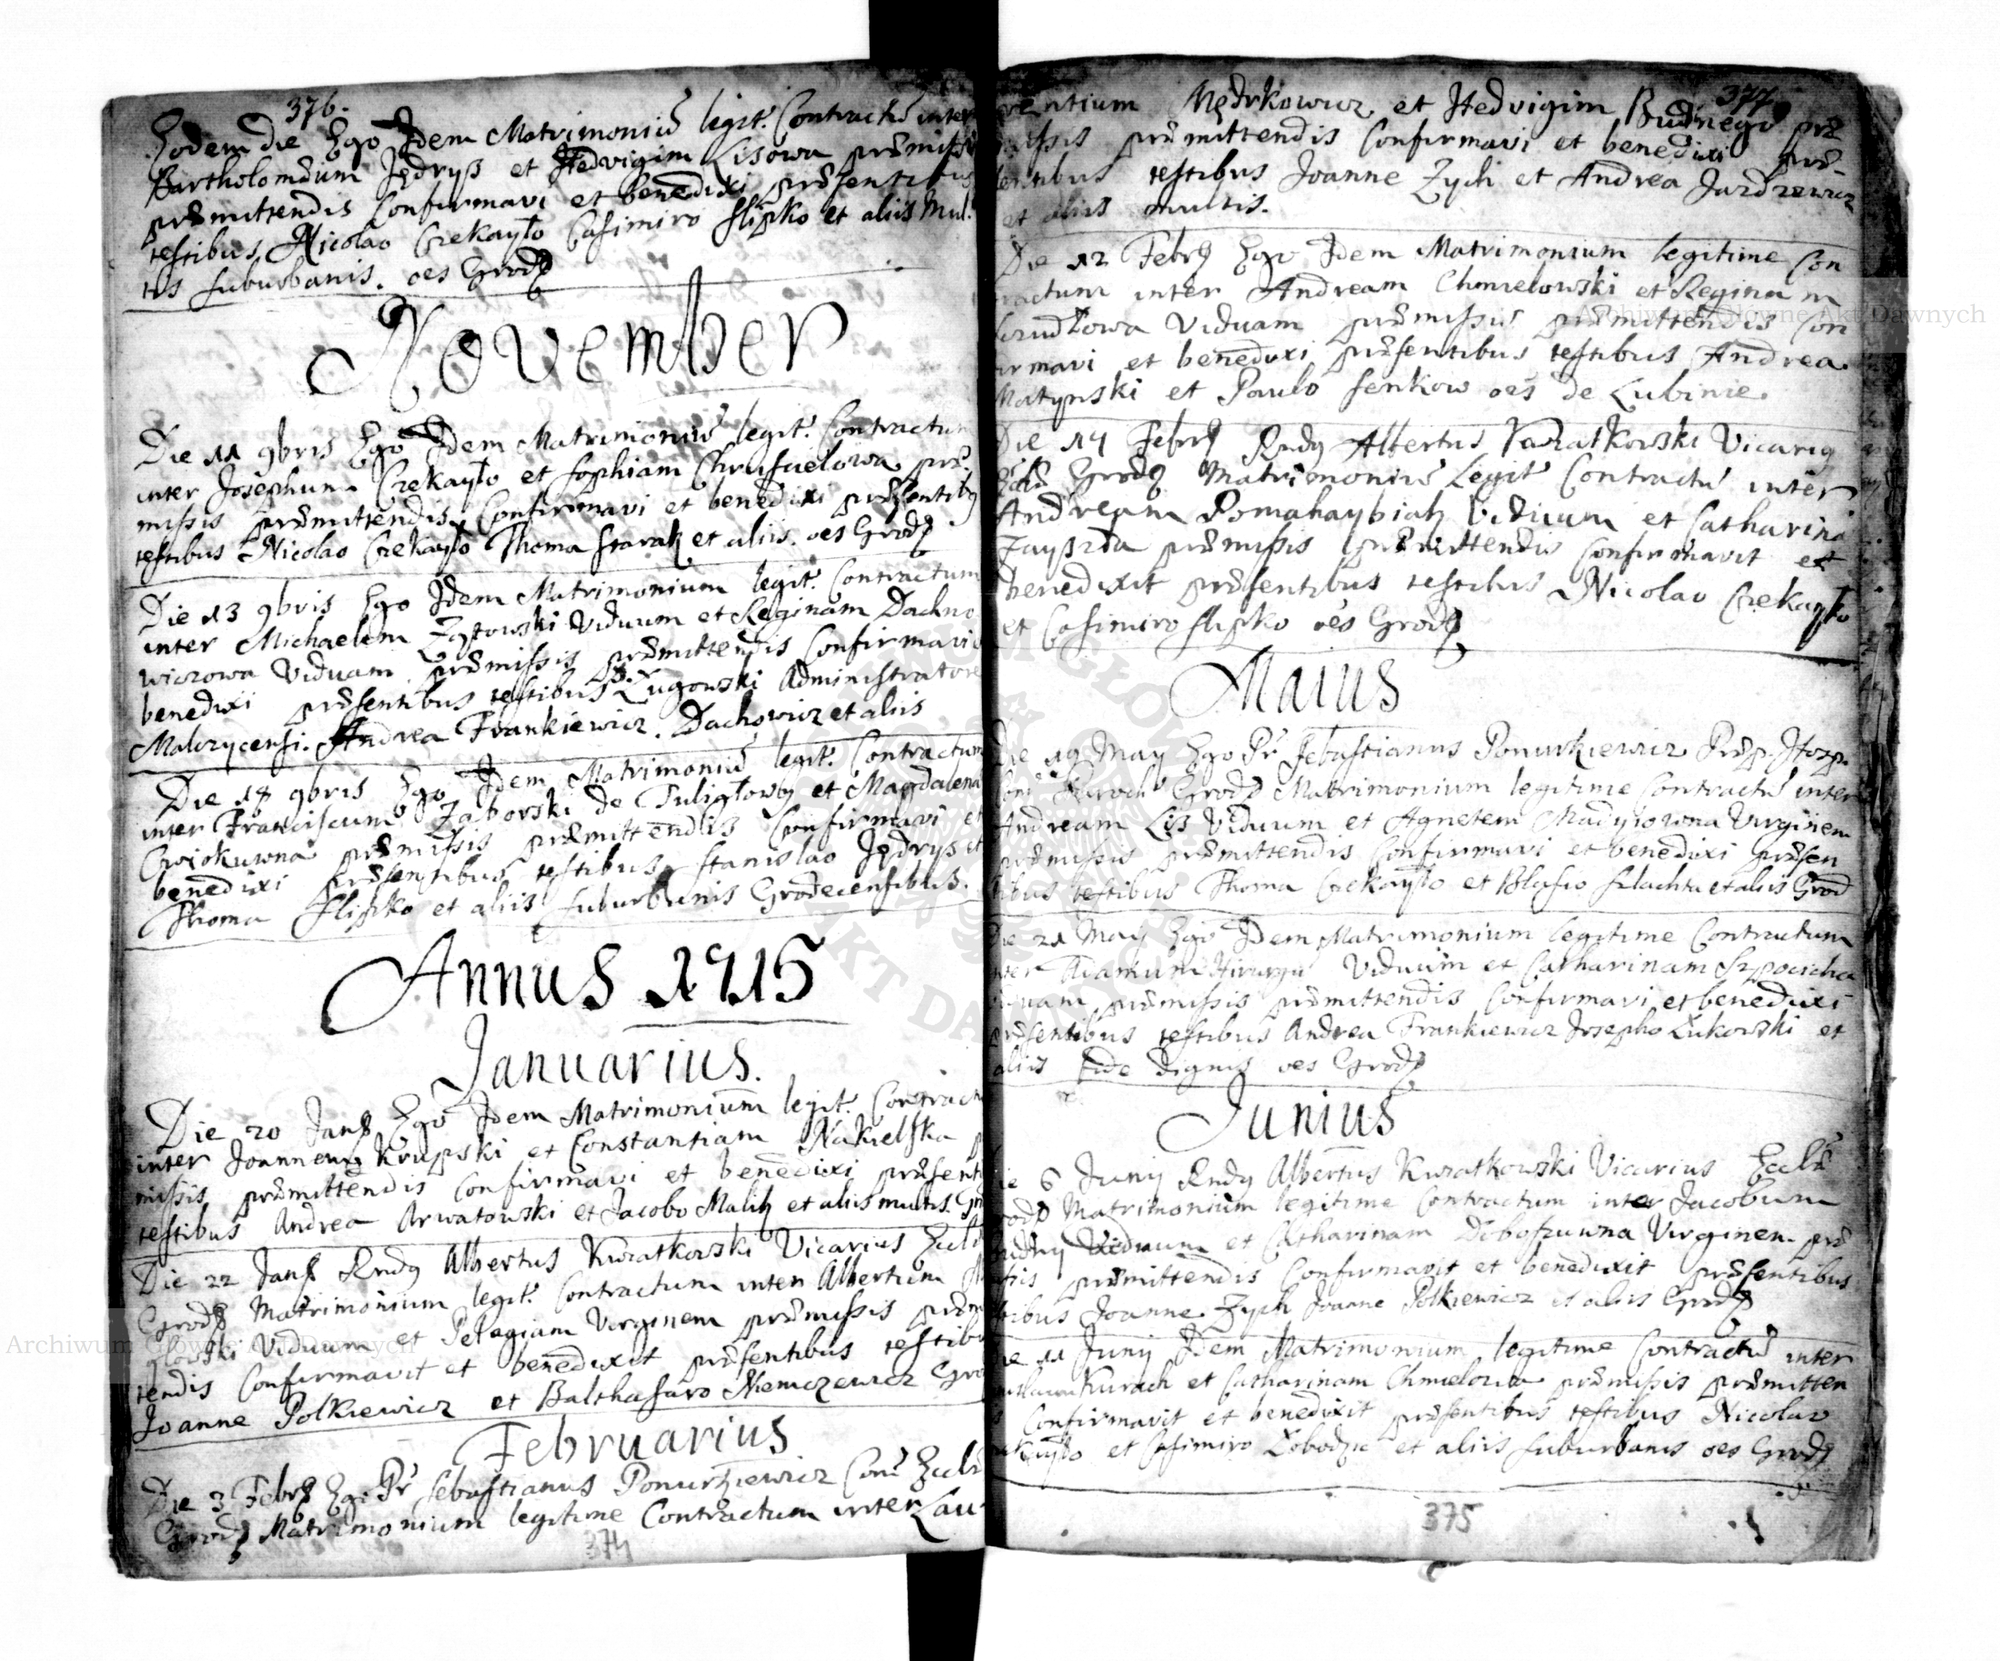 376.
Eodem die Ego Idem Matrimoniũ legit. Contractũ inter
Bartholomæum Jędrys et Hedvigim Lisowa præmissis
præmittendis Confirmavi et benedixi præsentibus
testibus Nicolao Czekayło Casimiro Slipko et aliis Mul
tis suburbanis. oes Grod
November
Die 11 9bris Ego Idem Matrimoniũ legit. Contractum
inter Josephum Czekayło et Sophiam præ
missis præmittendis Confirmavi et benedixi præsentib9
testibus Nicolao Czekayło Thoma Starak et aliis. oes Grod
Die 13 9bris Ego Idem Matrimonium legit. Contractum
inter Michaelem Zytowski Viduum et Reginam Dachno
wiczowa Viduam præmissis præmittendis Confirmavi
benedixi præsentibus testibus Ługowski Administratore
Malczycensi. Andrea Frankiewicz. Dachowicz et aliis
Die 18 9bris Ego Idem Matrimoniũ legit. Contractum
inter Franciscum Zaborski de Tuligłowy et Magdalena
præmissis præmittendis Confirmavi et
benedixi præsentibus testibus Stanislao Jędrys et
Thoma Slipko et aliis suburbanis Grodecensibus.
Annus 1715
Januarius.
Die 20 Jan Ego Idem Matrimonium legit. Contractu
inter Joannem Krupski et Constantiam Nakielska
missis præmittendis Confirmavi et benedixi præsenti
testibus Andrea Arwatowski et Jacobo Malik et aliis multis.
Die 22 Jan Rndg Albertus Kwiatkowski Vicarius
Grod Matrimonium legit. Contractum inter Albertum
głowski Viduum et Pelagiam Virginem præmissis præmi
tendis Confirmavit et benedixit præsentibus testibu
Joanne Polkiewicz et Balthasaro Niemczewicz Grod
Februarius
Die 3 Febr Ego Pr Sebastianus Ponurkiewicz
Grod Matrimonium legitime Contractum inter Lau
374
377
rentium Mędrkowicz et Hedvigim Budnego præ
missis præmittendis Confirmavi et benedixi præ
sentibus testibus Joanne Zych et Andrea Jazdrewicz
et aliis multis.
Die 12 Febr Ego Idem Matrimonium legitime Con
tractum inter Andream Chmielowski et Reginam
Viduam præmissis præmittendis Con
firmavi et benedixi præsentibus testibus Andrea
Matynski et Paulo Senkow oes de Lubinie.
Die 14 Febr Rndg Albertus Kwiatkowski Vicarig
Grod Matrimoniũ Legit Contractũ inter
Andream Viduum et Catharina
præmissis præmittendis Confirmavit et
benedixit præsentibus testibus Nicolao Czekayło
et Casimiro Slipko oes Grod
Maius
Die 19 May Ego Pr Sebastianus Ponurkiewicz Præp. Hosp.
Grod Matrimonium legitime Contractũ inter
Andream Lis Viduum et Agnetem Madyiowna Virginem
præmissis præmittendis Confirmavi et benedixi præsen
tibus testibus Thoma Czekayło et Blasio Szlachta et aliis Grod
Die 21 May Ego Idem Matrimonium legitime Contractum
inter Adamum Viduum et Catharinam
Viduam præmissis præmittendis Confirmavi et benedixi
præsentibus testibus Andrea Frankiewicz Josepho Łukowski et
aliis fide dignis oes Grod
Junius
Die 6 Junij Rndg Albertus Kwiatkowski Vicarius Eccl
Grod Matrimonium legitime Contractum inter Jacobum
Viduum et Catharinam Virginem præ
missis præmittendis Confirmavit et benedixit præsentibus
testibus Joanne Zych Joanne Polkiewicz et aliis Grod
Die 11 Junij Idem Matrimonium legitime Contractũ inter
Kurach et Catharinam præmissis præmitten
Confirmavit et benedixit præsentibus testibus Nicolao
et Casimiro et aliis suburbanis oes Grod
375
Archiwum Główne Akt Dawnych
Archiwum Główne Akt Dawnych